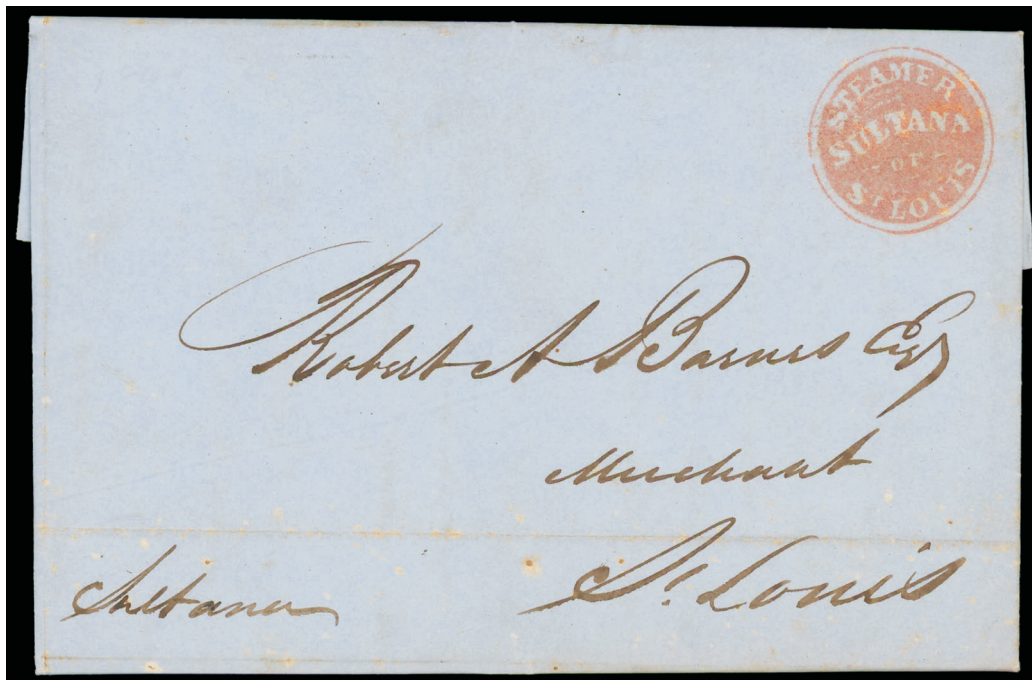 STEAMER
SULTANA
OF
ST LOUIS
Robert A Barnes Esq
Merchant
St Louis
Sultana